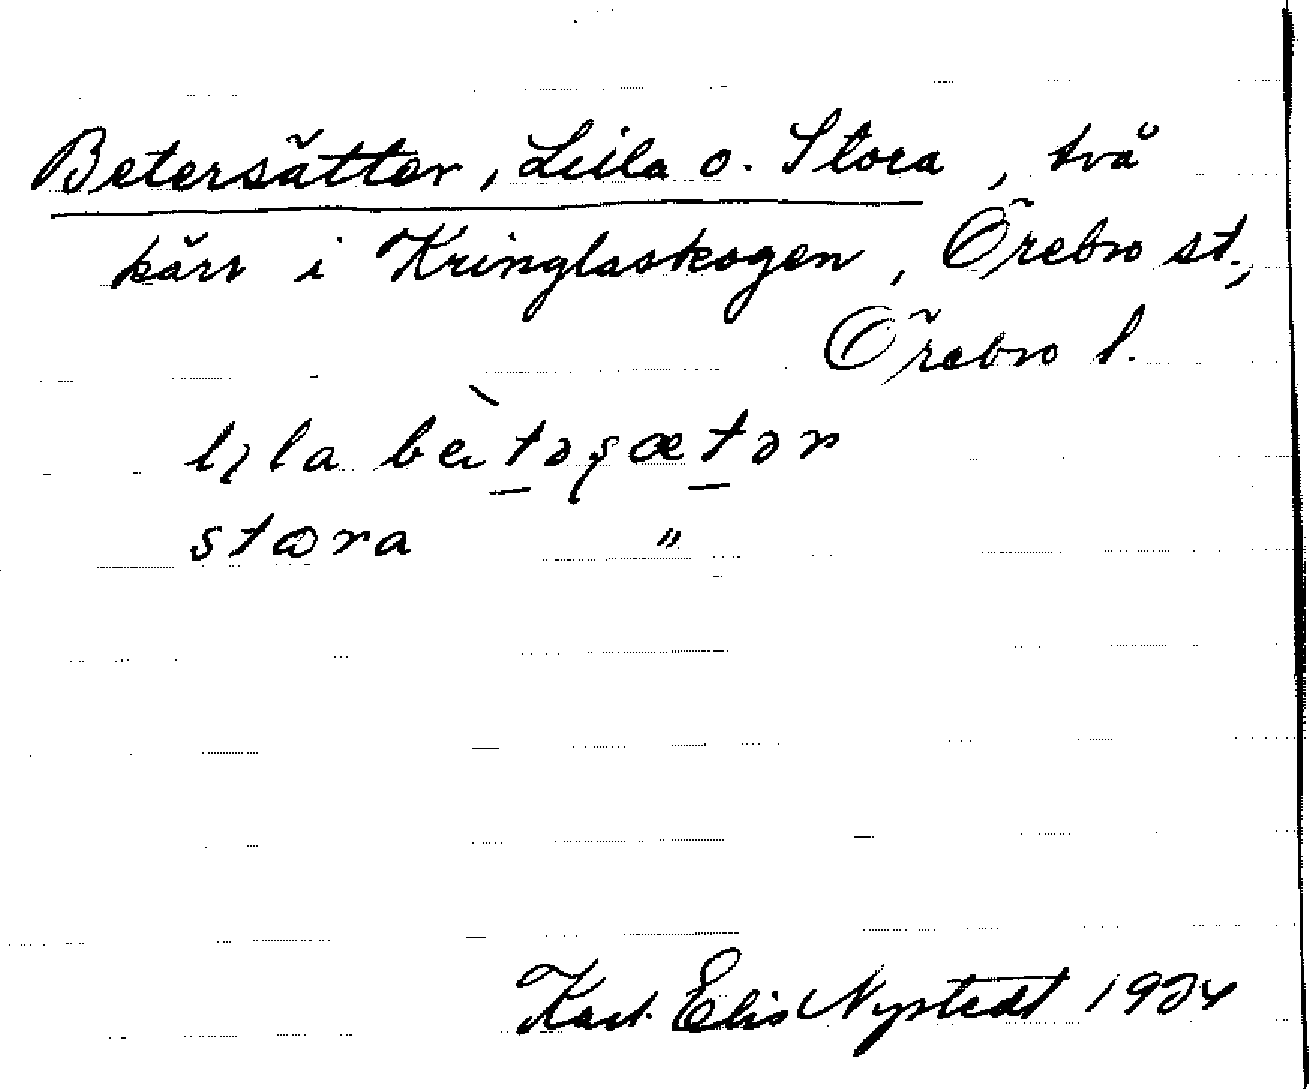 Betersätter, Leila o. Stora, två
kärr i Kringlaskogen, Örebro st.,
Örebro l.
la bètəşætər
stora "
Karl Elis Nystedt 1924